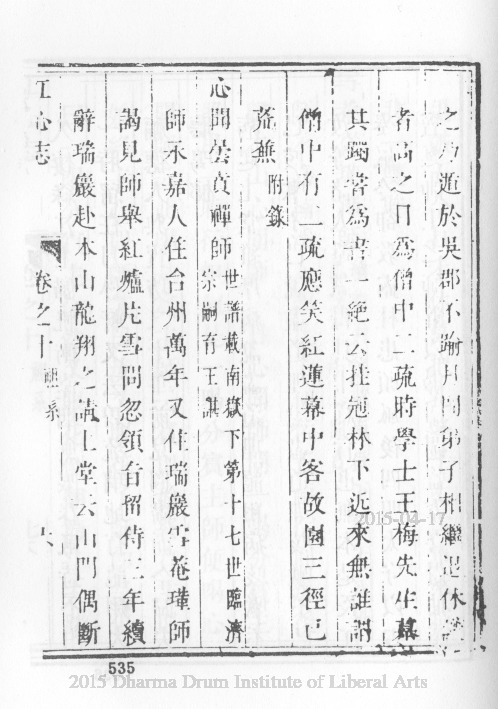 之乃遁於吳郡不踰月同弟子相繼退休
者高之目為僧中二疏時學士王梅先生
其躅者為書一絕云挂冠林下近來無誰
僧中有二疏應笑紅蓮幕中客故園三徑已
荒蕪 附錄
心聞曇賁禪師 世譜載南嶽下第十七世臨濟
宗嗣育王諶
師永嘉人住台州萬年又住瑞巖雪菴瑾師
謁見師舉紅爐片雪問忽領旨留侍三年續
辭瑞巖赴本山龍翔之請上堂云山門偶斷
江心志 卷之十 祖系 六
2015-04-17
535
2015 Dharma Drum Institute of Liberal Arts